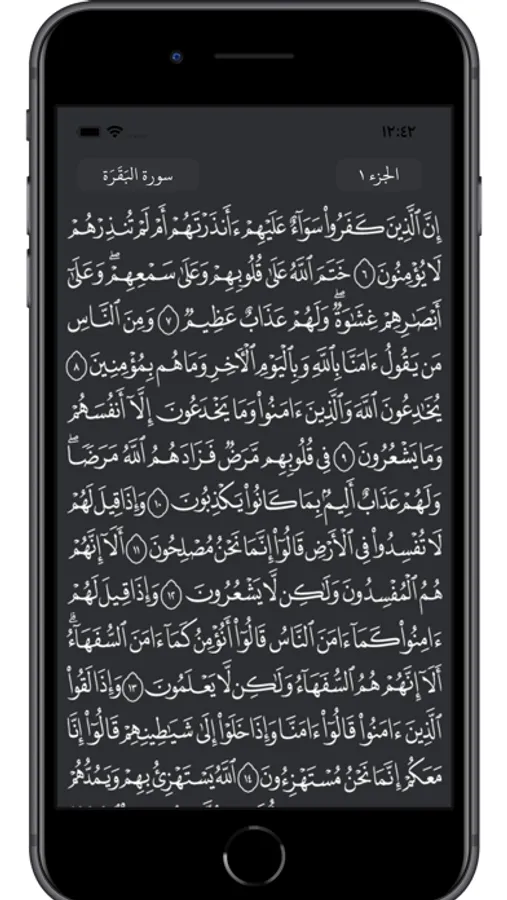 ١٢:٤٢
الجزء ١
سورة البَقَرَة
إِنَّ ٱلَّذِينَ كَفَرُوا۟ سَوَآءٌ عَلَيْهِمْ ءَأَنذَرْتَهُمْ أَمْ لَمْ تُنذِرْهُمْ
لَا يُؤْمِنُونَ ٦ خَتَمَ ٱللَّهُ عَلَىٰ قُلُوبِهِمْ وَعَلَىٰ سَمْعِهِمْ ۖ وَعَلَىٰٓ
أَبْصَـٰرِهِمْ غِشَـٰوَةٌ ۖ وَلَهُمْ عَذَابٌ عَظِيمٌ ٧ وَمِنَ ٱلنَّاسِ
مَن يَقُولُ ءَامَنَّا بِٱللَّهِ وَبِٱلْيَوْمِ ٱلْـَٔاخِرِ وَمَا هُم بِمُؤْمِنِينَ ٨
يُخَـٰدِعُونَ ٱللَّهَ وَٱلَّذِينَ ءَامَنُوا۟ وَمَا يَخْدَعُونَ إِلَّآ أَنفُسَهُمْ
وَمَا يَشْعُرُونَ ٩ فِى قُلُوبِهِم مَّرَضٌ فَزَادَهُمُ ٱللَّهُ مَرَضًا ۖ
وَلَهُمْ عَذَابٌ أَلِيمٌۢ بِمَا كَانُوا۟ يَكْذِبُونَ ١٠ وَإِذَا قِيلَ لَهُمْ
لَا تُفْسِدُوا۟ فِى ٱلْأَرْضِ قَالُوٓا۟ إِنَّمَا نَحْنُ مُصْلِحُونَ ١١ أَلَآ إِنَّهُمْ
هُمُ ٱلْمُفْسِدُونَ وَلَـٰكِن لَّا يَشْعُرُونَ ١٢ وَإِذَا قِيلَ لَهُمْ
ءَامِنُوا۟ كَمَآ ءَامَنَ ٱلنَّاسُ قَالُوٓا۟ أَنُؤْمِنُ كَمَآ ءَامَنَ ٱلسُّفَهَآءُ ۗ
أَلَآ إِنَّهُمْ هُمُ ٱلسُّفَهَآءُ وَلَـٰكِن لَّا يَعْلَمُونَ ١٣ وَإِذَا لَقُوا۟
ٱلَّذِينَ ءَامَنُوا۟ قَالُوٓا۟ ءَامَنَّا وَإِذَا خَلَوْا۟ إِلَىٰ شَيَـٰطِينِهِمْ قَالُوٓا۟ إِنَّا
مَعَكُمْ إِنَّمَا نَحْنُ مُسْتَهْزِءُونَ ١٤ ٱللَّهُ يَسْتَهْزِئُ بِهِمْ وَيَمُدُّهُمْ